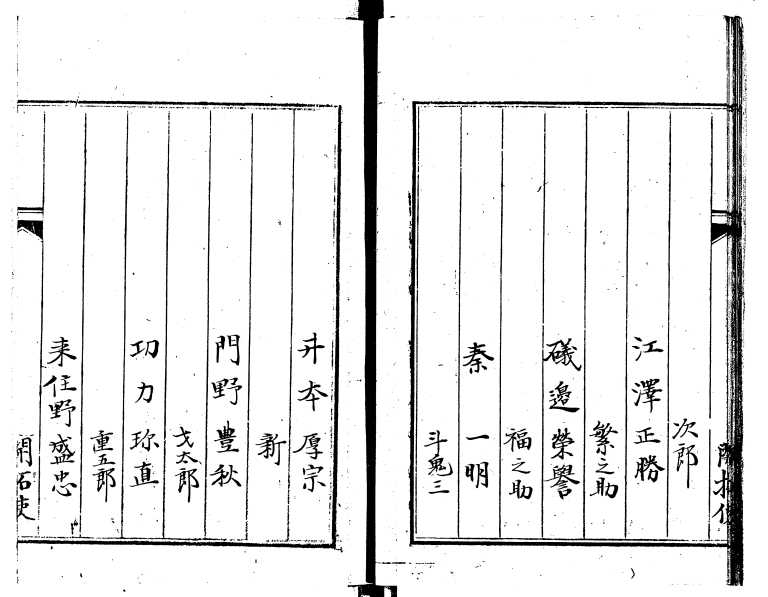 次郎
江澤正勝
繁之助
礒邉榮譽
福之助
秦一明
斗鬼三
升本厚宗
新
門野豊秋
戈太郎
功力珎直
重五郎
来住野盛忠
開拓使